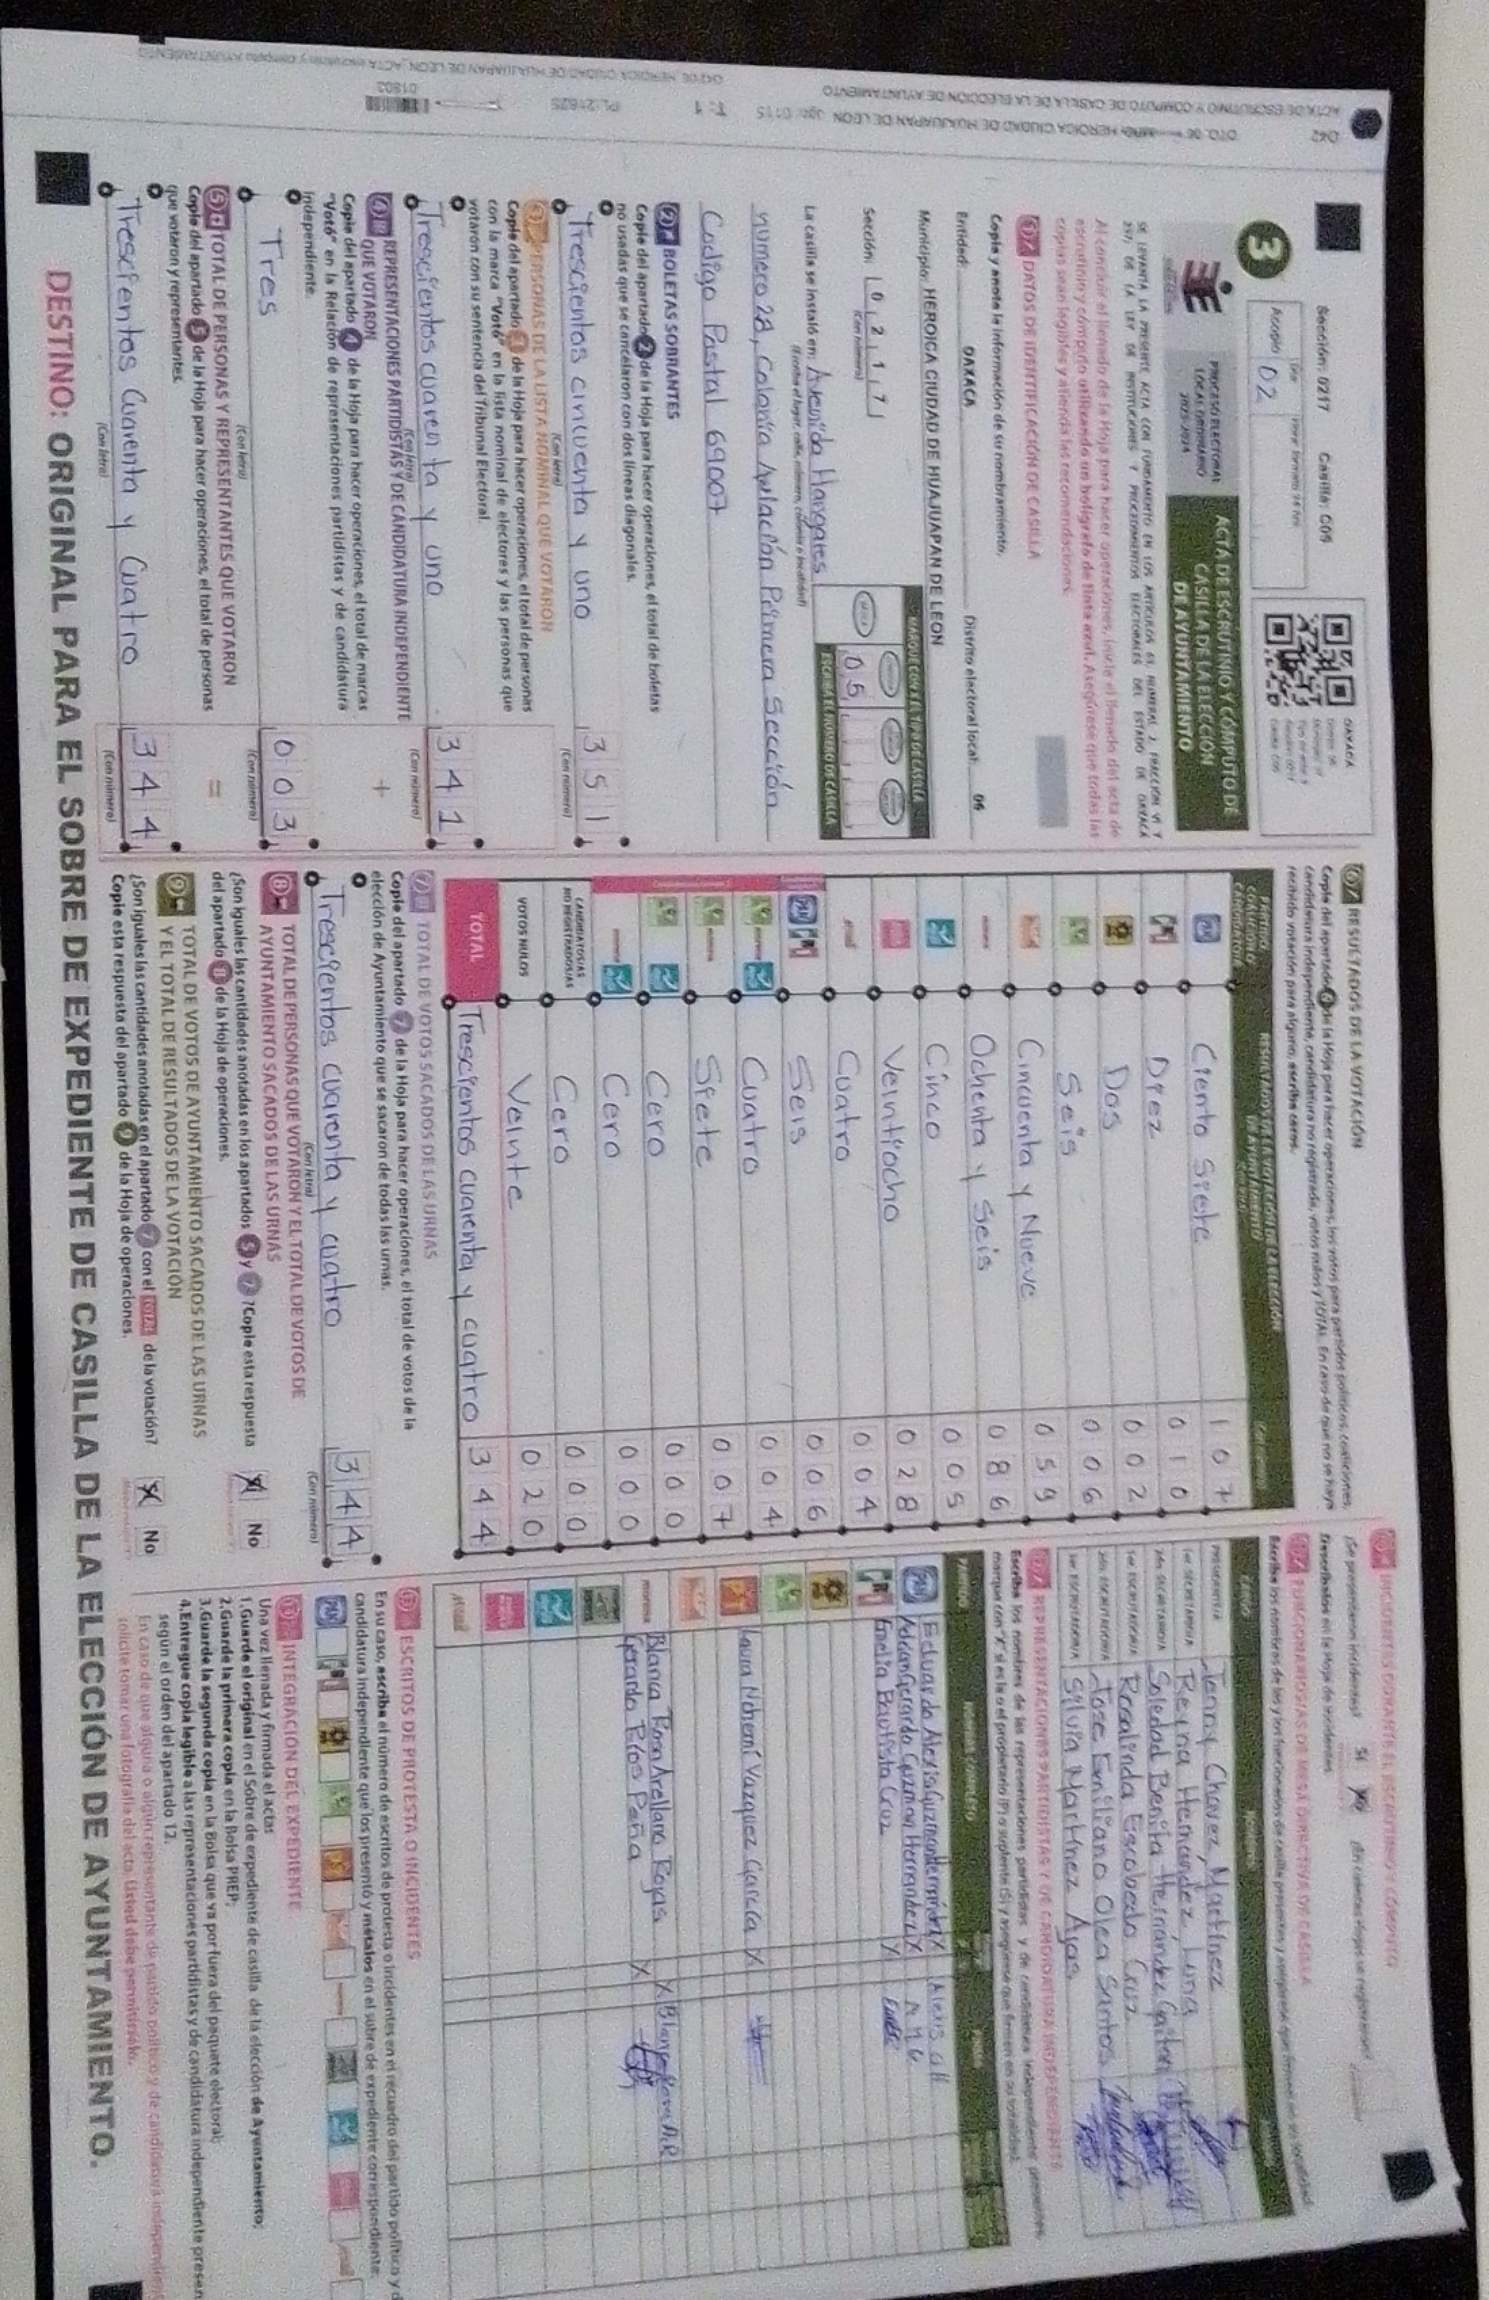 Sección: 0217 Casilla: C05
3
Acopio 02
OAXACA
PROCESO ELECTORAL
LOCAL ORDINARIO
2023-2024
ACTA DE ESCRUTINIO Y CÓMPUTO DE
CASILLA DE LA ELECCIÓN
DE AYUNTAMIENTO
Al concluir el llenado de la Hoja para hacer operaciones, inicie el llenado del acta de
escrutinio y cómputo utilizando un bolígrafo de tinta azul. Asegúrese que todas las
copias sean legibles y atienda las recomendaciones.
1 DATOS DE IDENTIFICACIÓN DE CASILLA
Copie y anote la información de su nombramiento.
Entidad: OAXACA Distrito electoral local: 06
Municipio: HEROICA CIUDAD DE HUAJUAPAN DE LEON
Sección: 0217
(Con número)
MARQUE CON X EL TIPO DE CASILLA
05
ESCRIBA EL NÚMERO DE CASILLA
La casilla se instaló en: Avenida Mangales
(Escriba el lugar, calle, número, colonia o localidad)
número 28, Colonia Aviación Primera Sección
Codigo Postal 69007
2 BOLETAS SOBRANTES
Copie del apartado 2 de la Hoja para hacer operaciones, el total de boletas
no usadas que se cancelaron con dos líneas diagonales.
Trescientos cincuenta y uno 351
(Con letra) (Con número)
3 PERSONAS DE LA LISTA NOMINAL QUE VOTARON
Copie del apartado 3 de la Hoja para hacer operaciones, el total de personas
con la marca "Votó" en la lista nominal de electores y las personas que
votaron con su sentencia del Tribunal Electoral.
Trescientos cuarenta y uno 341
(Con letra) (Con número)
4 REPRESENTACIONES PARTIDISTAS Y DE CANDIDATURA INDEPENDIENTE
QUE VOTARON
+
Copie del apartado 4 de la Hoja para hacer operaciones, el total de marcas
"Votó" en la Relación de representaciones partidistas y de candidatura
independiente.
Tres 003
(Con letra) (Con número)
5 TOTAL DE PERSONAS Y REPRESENTANTES QUE VOTARON
=
Copie del apartado 5 de la Hoja para hacer operaciones, el total de personas
que votaron y representantes.
Trescientos Cuarenta y Cuatro 344
(Con letra) (Con número)
6 RESULTADOS DE LA VOTACIÓN
Copie del apartado 6 de la Hoja para hacer operaciones, los votos para partidos políticos, coaliciones,
candidatura independiente, candidatura no registrada, votos nulos y TOTAL. En caso de que no se haya
recibido votación para alguno, escriba ceros.
PAN Ciento Siete 107
PRI Diez 010
Dos 002
Seis 006
Cincuenta y Nueve 059
morena Ochenta y Seis 086
Cinco 005
Veintiocho 028
Cuatro 004
Seis 006
Cuatro 004
Siete 007
Cero 000
Cero 000
CANDIDATOS/AS
NO REGISTRADOS/AS Cero 000
VOTOS NULOS Veinte 020
TOTAL Trescientos cuarenta y cuatro 344
7 TOTAL DE VOTOS SACADOS DE LAS URNAS
Copie del apartado 7 de la Hoja para hacer operaciones, el total de votos de la
elección de Ayuntamiento que se sacaron de todas las urnas.
Trescientos cuarenta y cuatro 344
(Con letra) (Con número)
8 TOTAL DE PERSONAS QUE VOTARON Y EL TOTAL DE VOTOS DE
AYUNTAMIENTO SACADOS DE LAS URNAS
¿Son iguales las cantidades anotadas en los apartados 5 y 7? Copie esta respuesta
del apartado 8 de la Hoja de operaciones.
X No
9 TOTAL DE VOTOS DE AYUNTAMIENTO SACADOS DE LAS URNAS
Y EL TOTAL DE RESULTADOS DE LA VOTACIÓN
¿Son iguales las cantidades anotadas en el apartado 7 con el TOTAL de la votación?
Copie esta respuesta del apartado 9 de la Hoja de operaciones.
X No
INCIDENTES DURANTE EL ESCRUTINIO Y CÓMPUTO
¿Se presentaron incidentes? Sí
FUNCIONARIOS/AS DE MESA DIRECTIVA DE CASILLA
PRESIDENTE/A Jenny Chavez Martínez
Reyna Hernandez Luna
Soledad Benita Hernández Gaitan
Rosalinda Escobedo Cruz
Jose Emiliano Olea Santos
Silvia Martínez Ajas
REPRESENTACIONES PARTIDISTAS Y DE CANDIDATURA INDEPENDIENTE
Escriba los nombres de las representaciones partidistas y de candidatura independiente presentes,
marque con "X" si es la o el propietario (P) o suplente (S) y asegúrese que firmen en su totalidad.
Eduardo Alexis Guzman Hernández X
Adrian Gerardo Guzman Hernandez X
Emelia Bautista Cruz X
Laura Nohemí Vazquez García X
Blanca Rosa Arellano Rojas X
Gerardo Ríos Peña X
ESCRITOS DE PROTESTA O INCIDENTES
En su caso, escriba el número de escritos de protesta o incidentes en el recuadro del partido político y
candidatura independiente que los presentó y métalos en el sobre de expediente correspondiente.
INTEGRACIÓN DEL EXPEDIENTE
Una vez llenada y firmada el acta:
1. Guarde el original en el Sobre de expediente de casilla de la elección de Ayuntamiento;
2. Guarde la primera copia en la Bolsa PREP;
3. Guarde la segunda copia en la Bolsa que va por fuera del paquete electoral;
4. Entregue copia legible a las representaciones partidistas y de candidatura independiente presen
según el orden del apartado 12.
En caso de que alguna o algún representante de partido político y de candidatura independien
solicite tomar una fotografía del acta, Usted debe permitírselo.
DESTINO: ORIGINAL PARA EL SOBRE DE EXPEDIENTE DE CASILLA DE LA ELECCIÓN DE AYUNTAMIENTO.
ACTA DE ESCRUTINIO Y COMPUTO DE CASILLA DE LA ELECCION DE AYUNTAMIENTO
01802